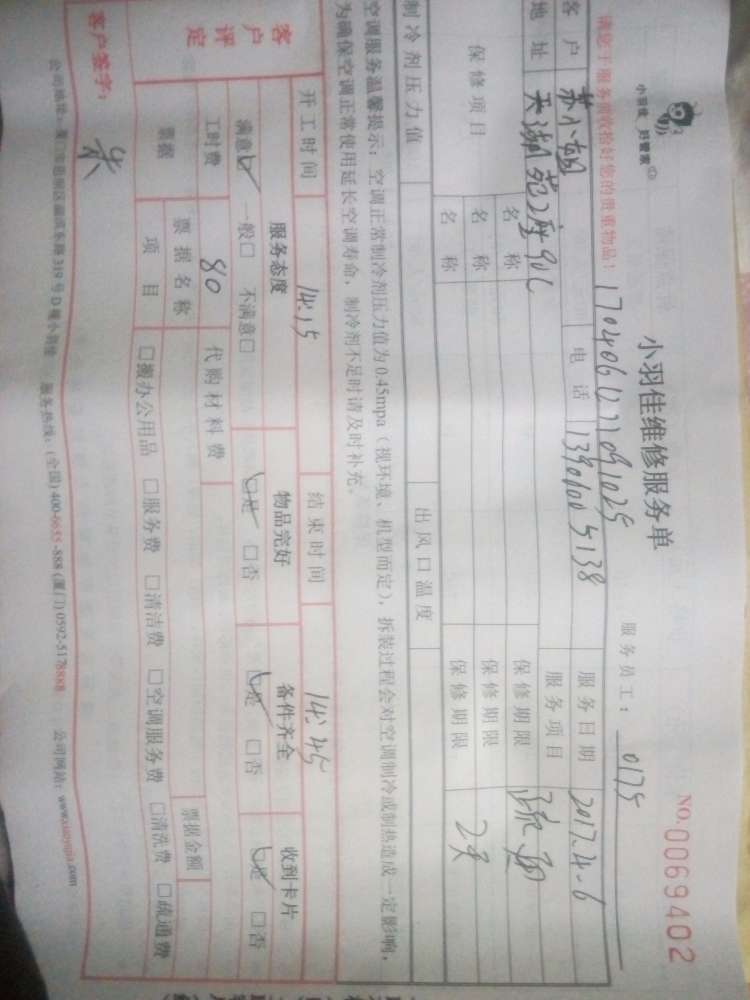 小羽佳 好管家
小羽佳维修服务单
NO.0069402
服务员工: 0175
请您于服务前收拾好您的贵重物品! 1704061221091025
客户 苏小姐 电话 服务日期 2017.4-6
地址 天湖苑2座90C 服务项目
保修项目 名称 保修期限
名称 保修期限 2天
名称 保修期限
制冷剂压力值 出风口温度
空调服务温馨提示:空调正常制冷剂压力值为0.45mpa(视环境、机型而定),拆装过程会对空调制冷或制热造成一定影响,
为确保空调正常使用延长空调寿命,制冷剂不足时请及时补充。
开工时间 14:15 结束时间 14:45
客户评定 服务态度 物品完好 备件齐全 收到卡片
满意☑ 一般□ 不满意□ ☑是 □否 ☑是 □否 ☑是 □否
工时费 80 代购材料费
票据 票据名称 票据金额
项目 □搬办公用品 □服务费 □清洁费 □空调服务费 □清洗费 □疏通费
客户签字:
319号D幢小羽佳 服务热线:(全国)400-6655-888(厦门)0592-5178888 公司网站:www.xiaoyujia.com